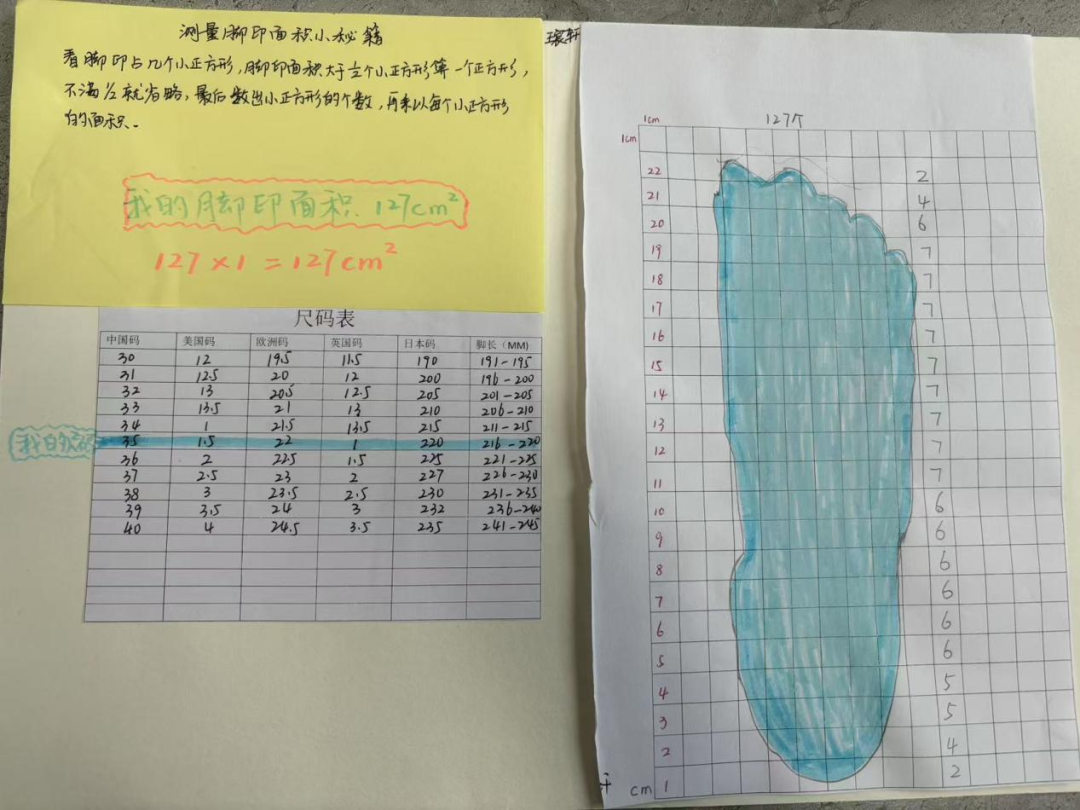 测量脚印面积小秘籍
看脚印占几个小正方形,脚印面积大于½个小正方形算一个正方形,
不满½就省略,最后数出小正方形的个数,再乘以每个小正方形
的面积.
我的脚印面积.127cm²
127×1=127cm²
尺码表
中国码 美国码 欧洲码 英国码 日本码 脚长(MM)
30 12 19.5 11.5 190 191-195
31 12.5 20 12 200 196-200
32 13 20.5 12.5 205 201-205
33 13.5 21 13 210 206-210
34 1 21.5 13.5 215 211-215
35 1.5 22 1 220 216-220
36 2 22.5 1.5 225 221-225
37 2.5 23 2 227 226-230
38 3 23.5 2.5 230 231-235
39 3.5 24 3 232 236-240
40 4 24.5 3.5 235 241-245
我的
轩
1cm
127个
1cm
22 2
21 4
20 6
19 7
18 7
17 7
16 7
15 7
14 7
13 7
12 7
11 7
10 6
9 6
8 6
7 6
6 6
5 6
4 5
3 5
2 4
cm 1 2